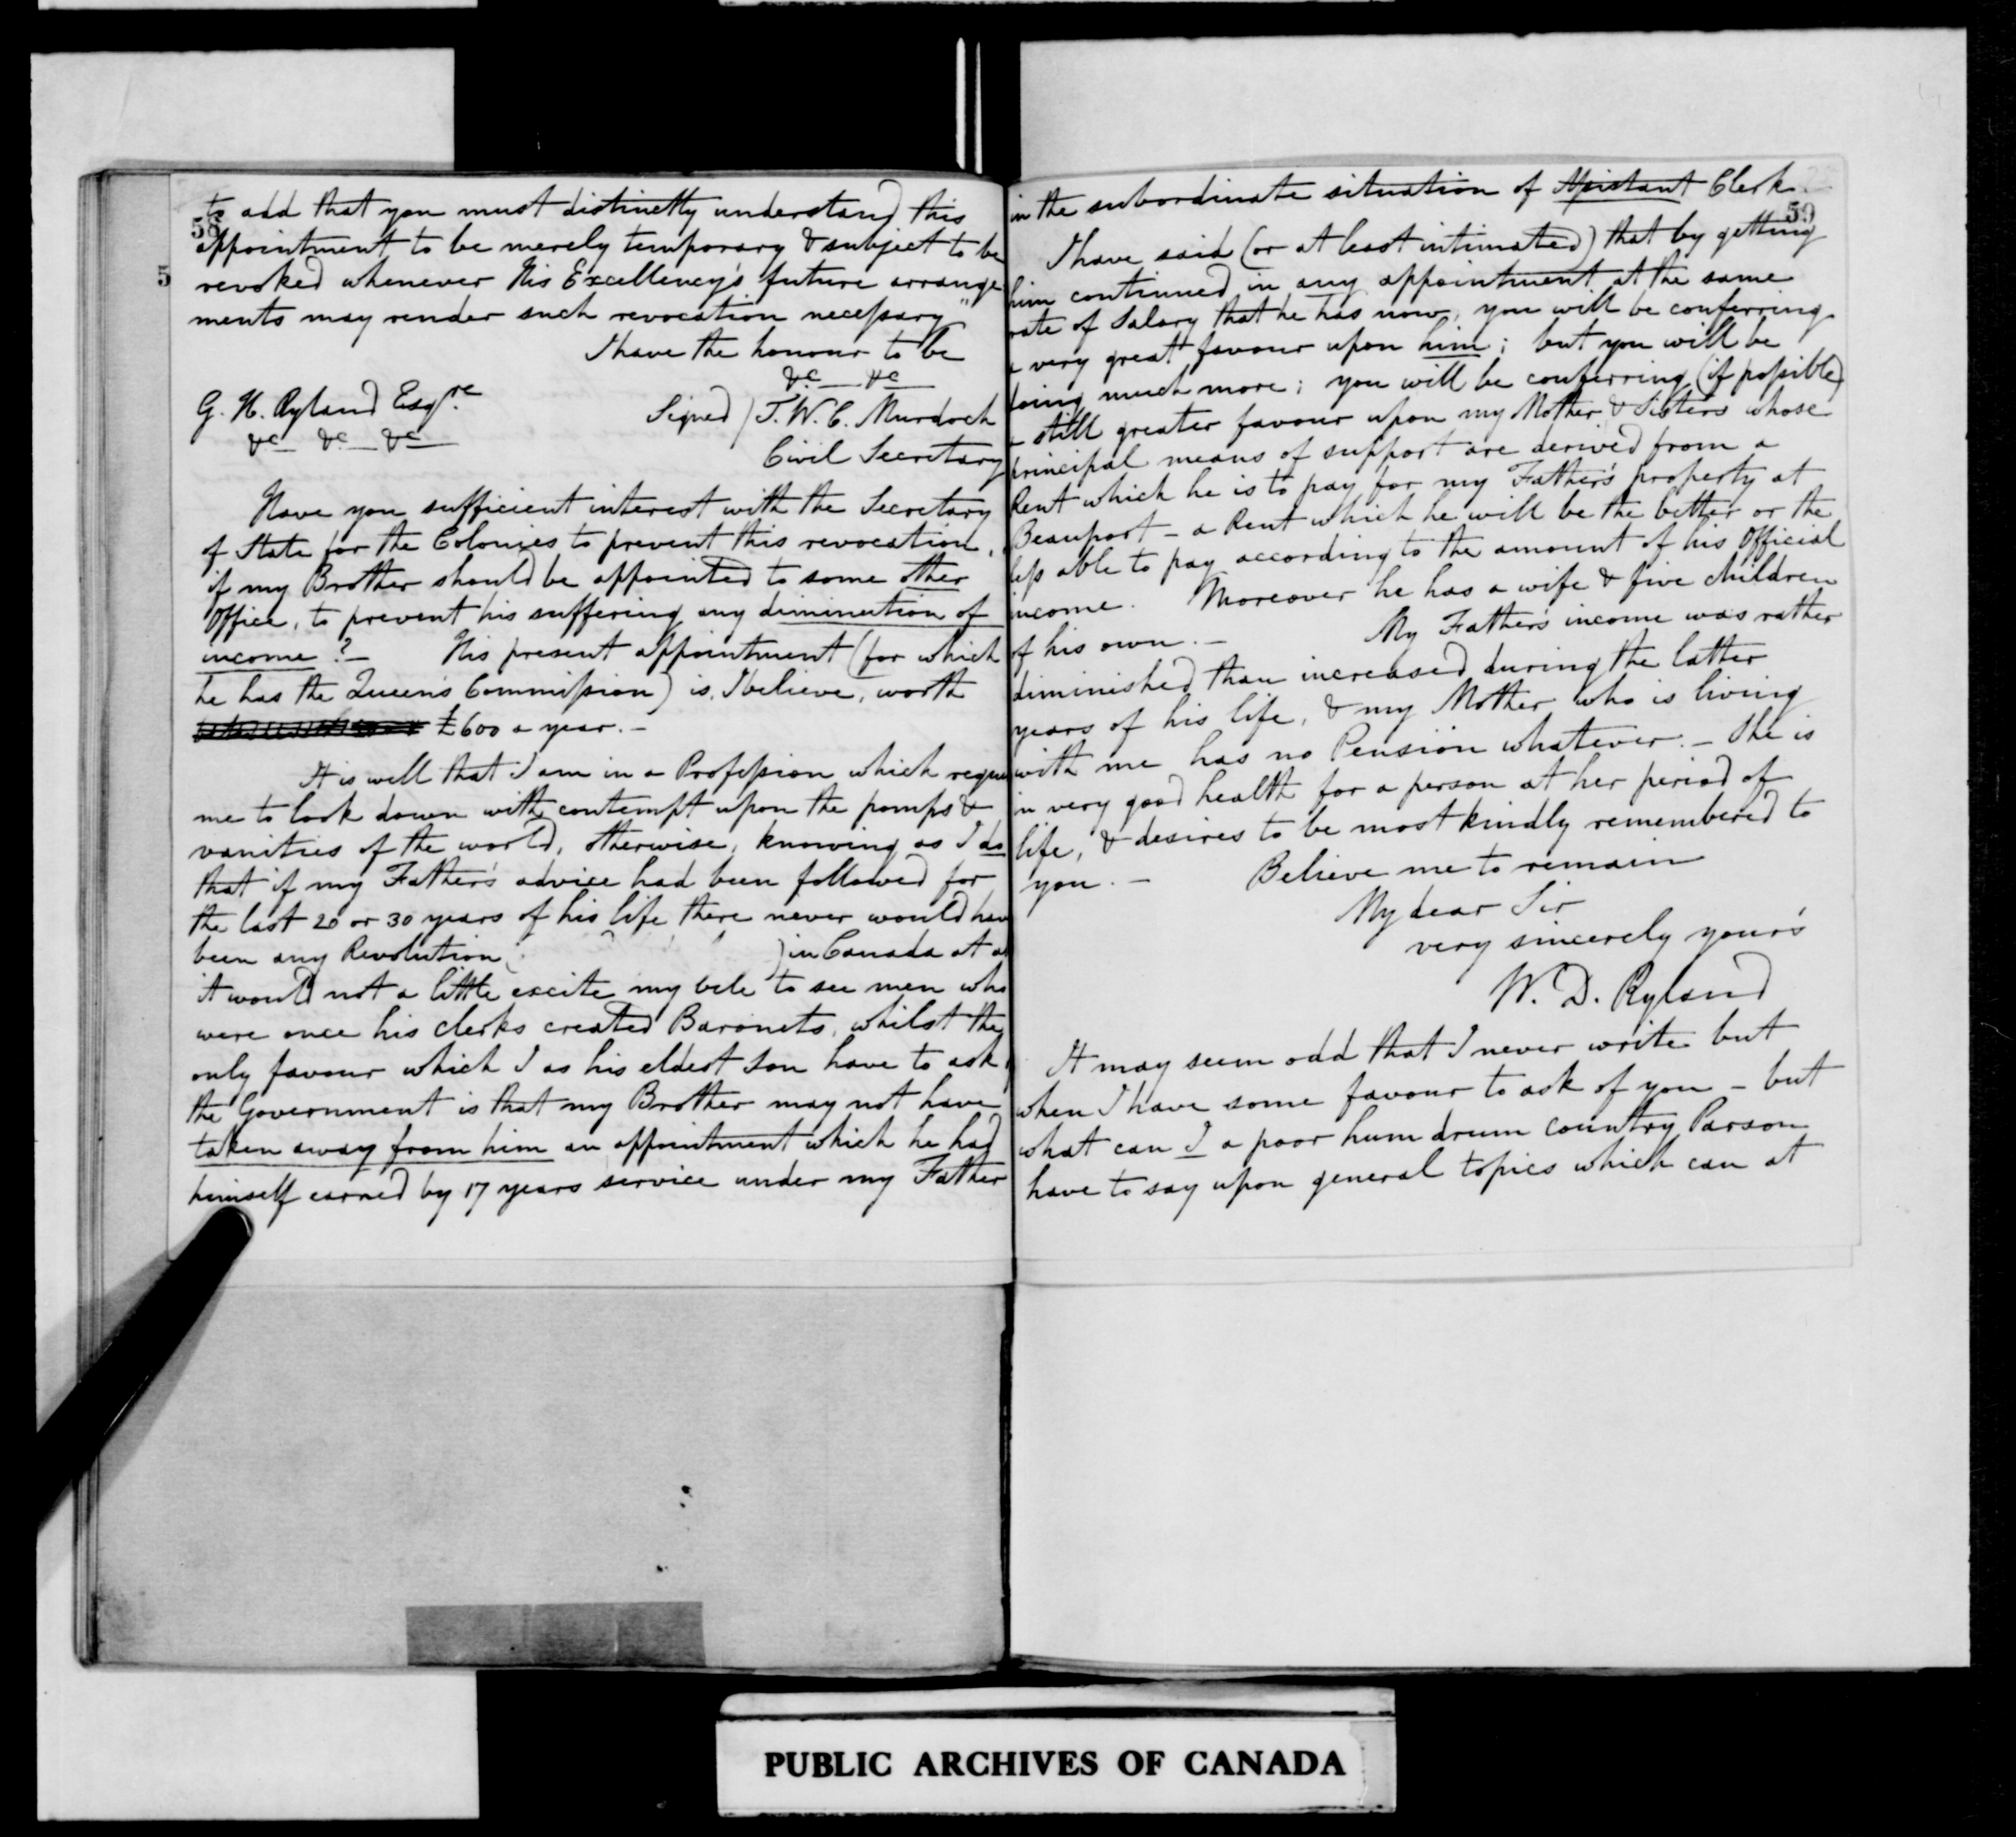 58
to add that you must distinctly understand this
appointment to be merely temporary & subject to be
5
revoked whenever His Excellency's future arrange
ments may render such revocation necessary"
I have the honour to be
&c — &c
G. H. Ryland Esqre
Signed / T. W. C. Murdoch
&c — &c — &c
Civil Secretary
Have you sufficient interest with the Secretary
of State for the Colonies to prevent this revocation,
if my Brother should be appointed to some other
Office, to prevent his suffering any diminution of
income? — His present appointment (for which
he has the Queen's Commission) is, I believe, worth
£600 a year. —
It is well that I am in a Profession which requi
me to look down with contempt upon the pomps &
vanities of the world, otherwise, knowing as I do
that if my Father's advice had been followed for
the last 20 or 30 years of his life there never would hav
been any Revolution ( ) in Canada at a
it would not a little excite my bile to see men who
were once his clerks created Baronets, whilst the
only favour which I as his eldest Son have to ask
the Government is that my Brother may not have
taken away from him an appointment which he had
himself earned by 17 years service under my Father
in the subordinate situation of Assistant Clerk.
59
I have said (or at least intimated) that by getting
him continued in any appointment at the same
rate of Salary that he has now, you will be conferring
a very great favour upon him; but you will be
doing much more; you will be conferring (if possible)
a still greater favour upon my Mother & Sisters whose
principal means of support are derived from a
Rent which he is to pay for my Father's property at
Beauport — a Rent which he will be the better or the
less able to pay according to the amount of his Official
income. Moreover he has a wife & five children
of his own. — My Father's income was rather
diminished than increased during the latter
years of his life, & my Mother who is living
with me has no Pension whatever. — She is
in very good health for a person at her period of
life, & desires to be most kindly remembered to
you. — Believe me to remain
My dear Sir
very sincerely your's
W. D. Ryland
It may seem odd that I never write but
when I have some favour to ask of you — but
what can I a poor hum drum country Parson
have to say upon general topics which can at
PUBLIC ARCHIVES OF CANADA